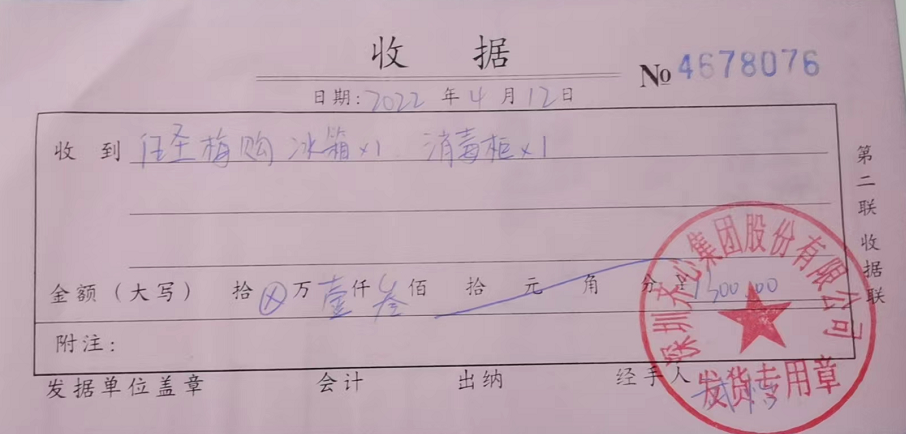 收 据
№ 4678076
日期:2022 年 4 月 12 日
收 到 任圣梅购 冰箱×1 消毒柜×1
金额(大写) 拾 ⊗ 万 壹 仟 叁 佰 拾 元 角 分 ¥ 1300.00
附注:
发据单位盖章 会计 出纳 经手人
第二联 收据联
深圳齐心集团股份有限公司
发货专用章